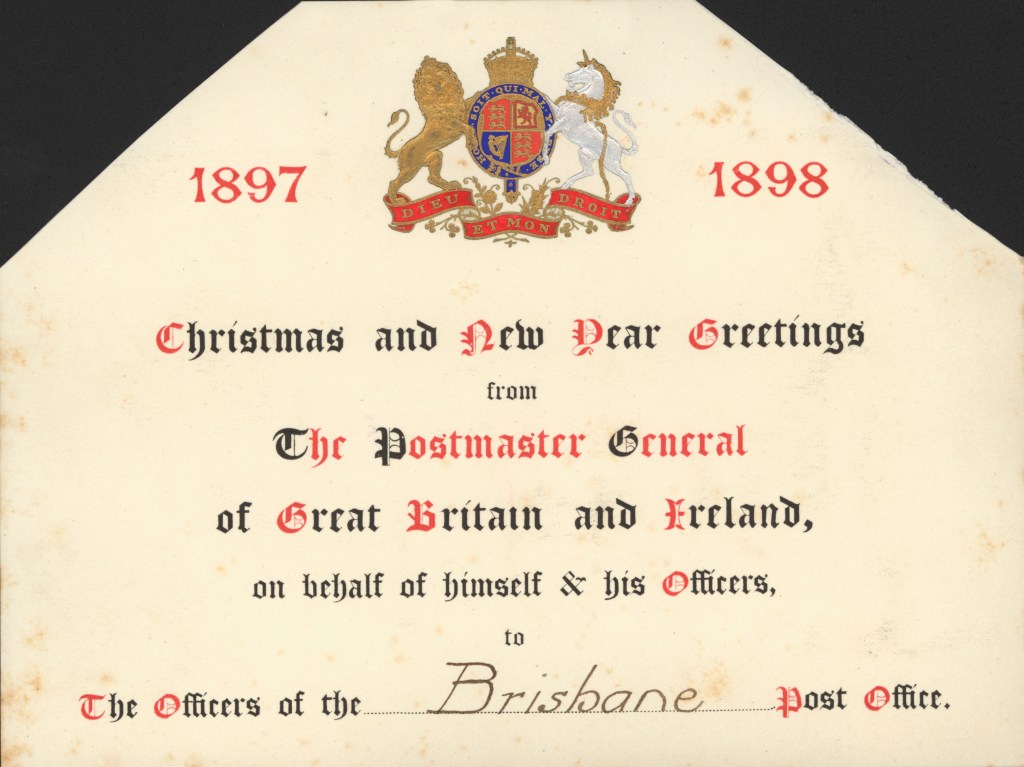 SOIT·QUI·MAL·Y
DIEU ET MON DROIT
1897 1898
Christmas and New Year Greetings
from
The Postmaster General
of Great Britain and Ireland,
on behalf of himself & his Officers,
to
The Officers of the Brisbane Post Office.